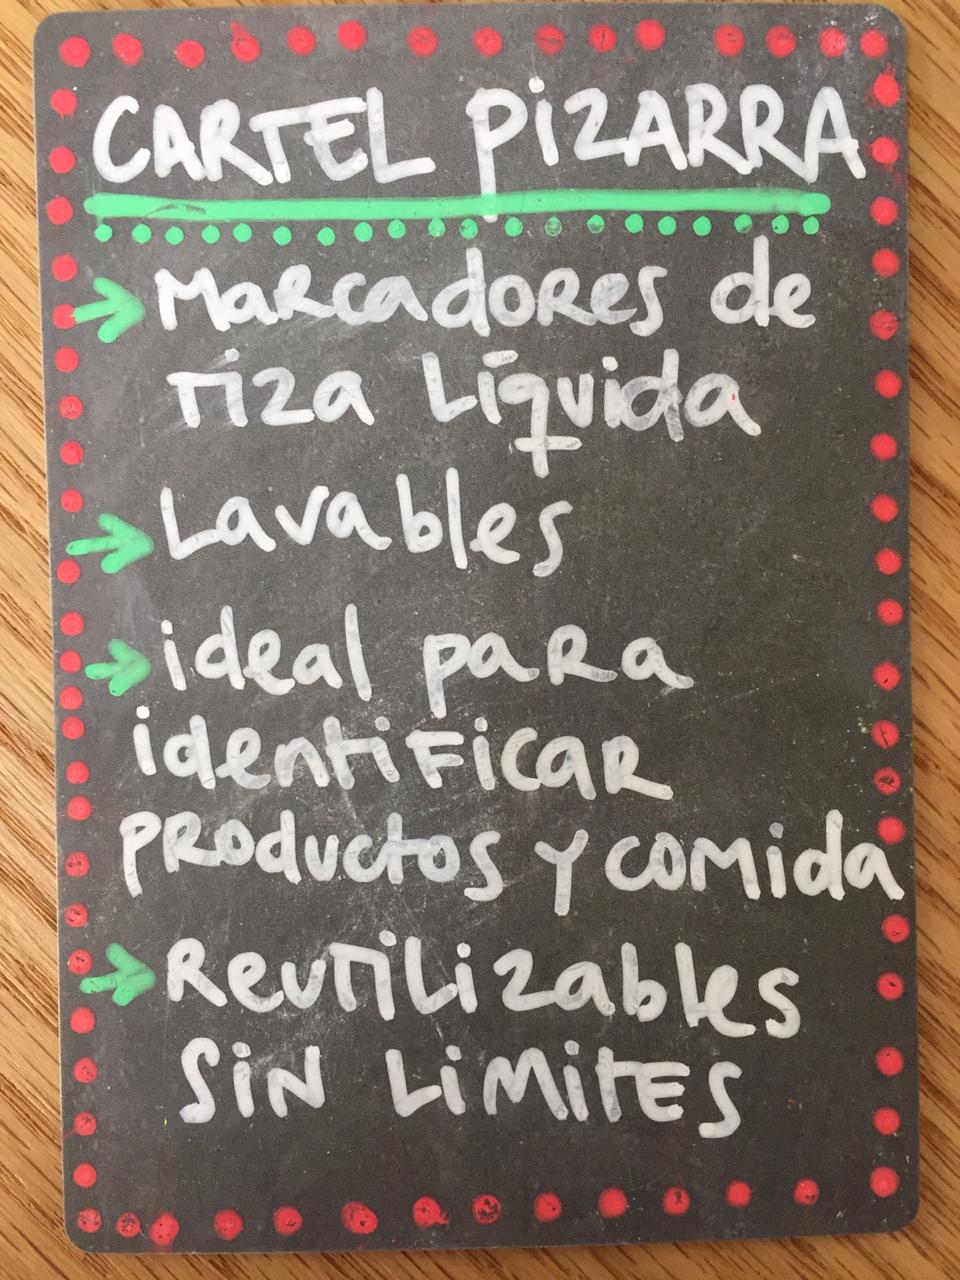 CARTEL PiZARRA
→ Marcadores de
tiza Líquida
→ Lavables
→ ideal para
identificar
productos y comida
→ Reutilizables
Sin LiMitES